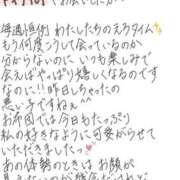 毎週恒例 わたしたちのえろタイム
もう何度こうして会っているのか
分からないのに いつも楽しみで
会えばやっぱり嬉しくなるのです
なのに!!昨日しちゃったの
悪い子ですねぇっ
お布団では今日もたっぷり
私の好きなように可愛がらせて
いただきました
あの体勢のときは お顔が